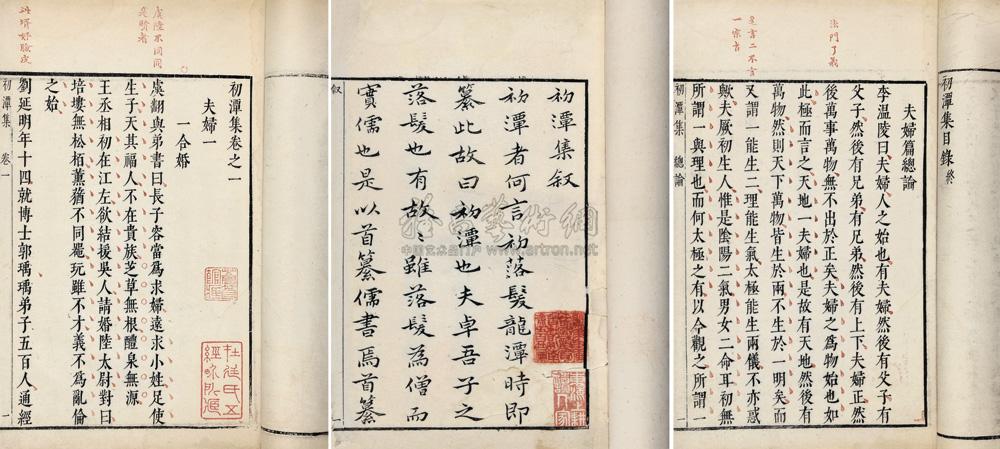 初潭集目錄 終
夫婦篇總論
李溫陵曰夫婦人之始也有夫婦然後有父子有
父子然後有兄弟有兄弟然後有上下夫婦正然
後萬事萬物無不出於正矣夫婦之為物始也如
此極而言之天地一夫婦也是故有天地然後有
萬物然則天下萬物皆生於兩不生於一明矣而
又謂一能生二理能生氣太極能生兩儀不亦惑
歟夫厥初生人惟是陰陽二氣男女二命耳初無
所謂一與理也而何太極之有以今觀之所謂一
初潭集 總論 一
法門了義
是言二不言
一宗旨
初潭集叙
初潭者何言初落髮龍潭時即
纂此故曰初潭也夫卓吾子之
落髮也有故故雖落髮為僧而
實儒也是以首纂儒書焉首纂
叙
初潭集卷之一
夫婦一
一合婚
虞翻與弟書曰長子容當為求婦遠求小姓足使
生子天其福人不在貴族芝草無根醴泉無源
王丞相初在江左欲結援吳人請婚陸太尉對曰
培塿無松栢薰蕕不同器玩雖不才義不為亂倫
之始
劉延明年十四就博士郭瑀瑀弟子五百人通經
初潭集 卷一 一
虞陸不同同
是賢者
杜延氏五
經咏所
雅昌藝術網
中国艺术品门户 www.artron.net